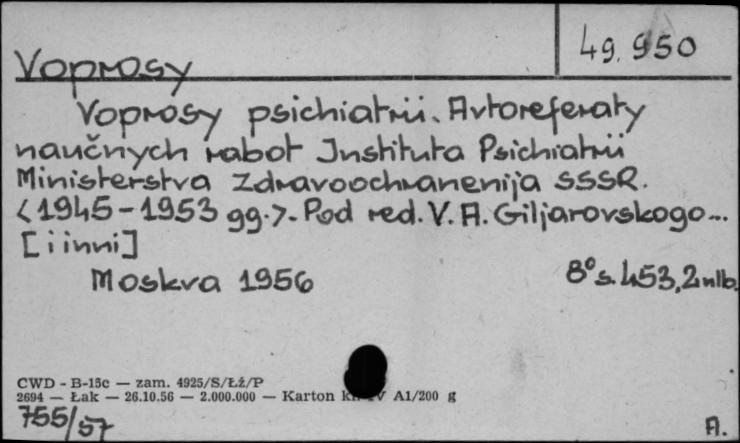 49.950
Voprosy
Voprosy psichiatrii. Avtoreferaty
naučnych rabot Instituta Psichiatrii
Ministerstva Zdravoochranenija SSSR.
<1945-1953 gg.>. Pod red. V. A. Giljarovskogo...
[i inni]
Moskva 1956 8° s. 453, 2 nlb.
CWD - B-15c — zam. 4925/S/Łź/P
2694 — Łak — 26.10.56 — 2.000.000 — Karton kl. IV A1/200 g
755/57
A.